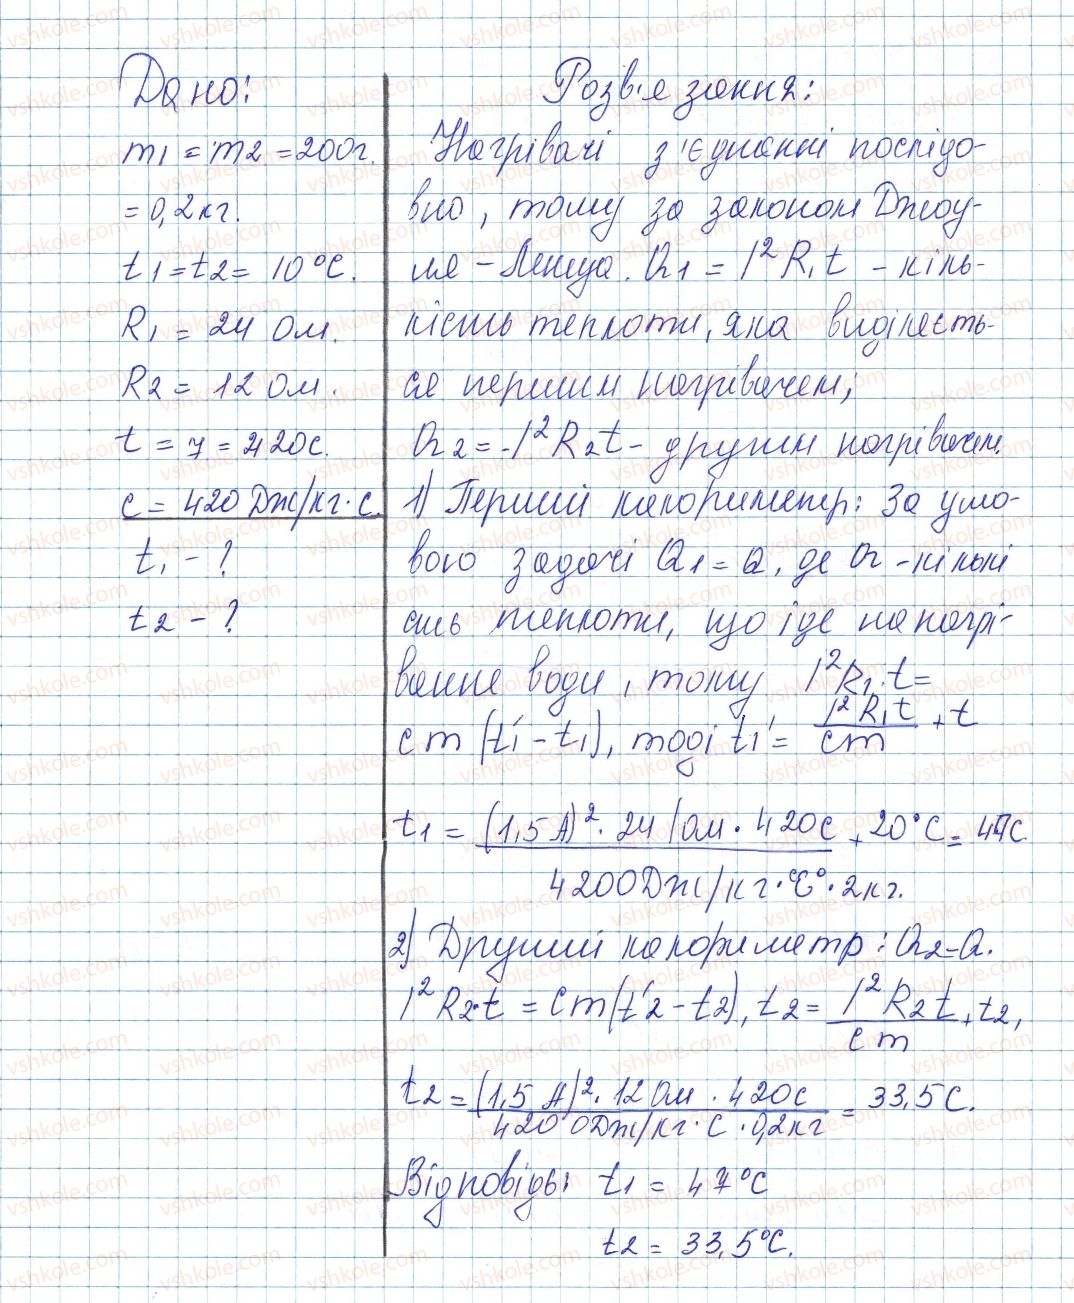 Дано:
m1 = m2 = 200г.
= 0,2кг.
t1 = t2 = 10°C.
R1 = 24 Ом.
R2 = 12 Ом.
t = 7 = 420с.
c = 420 Дж/кг·С.
t1 - ?
t2 - ?
Розв'язання:
Нагрівачі з'єднанні послідо-
вно, тому за законом Джоу-
ля - Ленца. Q1 = I²R1t - кіль-
кість теплоти, яка виділяєть-
ся першим нагрівачем;
Q2 = I²R2t - другим нагрівачем.
1) Перший калориметр: За умо-
вою задачі Q1 = Q, де Q - кількі
сть теплоти, що іде на нагрі-
вання води, тому I²R1·t =
cm (t1' - t1), тоді t1' = I²R1t / cm + t
t1 = (1,5 А)²· 24 Ом · 420с / 4200Дж/кг·°С·2кг. + 20°C = 47С
2) Другий калориметр: Q2=Q.
I²R2·t = cm(t'2 - t2), t2 = I²R2t / cm + t2,
t2 = (1,5 А)²· 12 Ом · 420с / 4200Дж/кг·С·0,2кг = 33,5С.
Відповідь: t1 = 47°C
t2 = 33,5°C.
vshkole.com